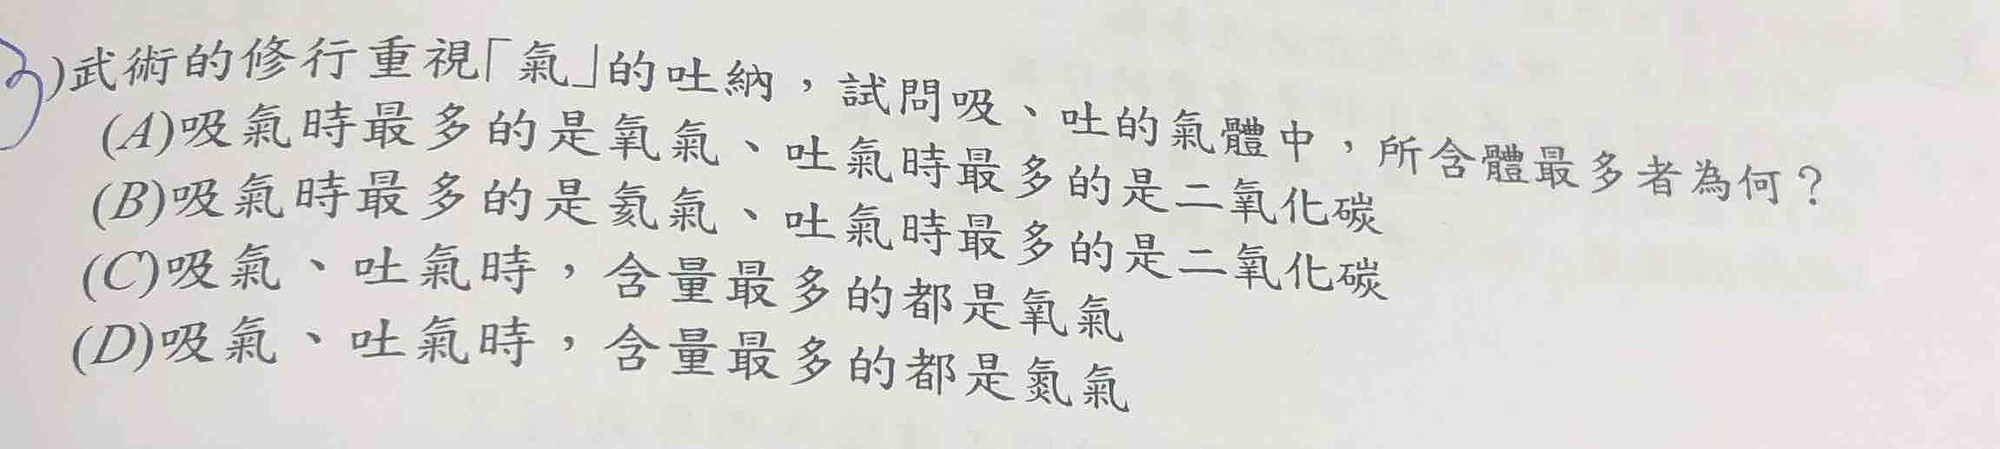 )武術的修行重視「氣」的吐納，試問吸、吐的氣體中，所含體最多者為何？
(A)吸氣時最多的是氧氣、吐氣時最多的是二氧化碳
(B)吸氣時最多的是氦氣、吐氣時最多的是二氧化碳
(C)吸氣、吐氣時，含量最多的都是氧氣
(D)吸氣、吐氣時，含量最多的都是氮氣